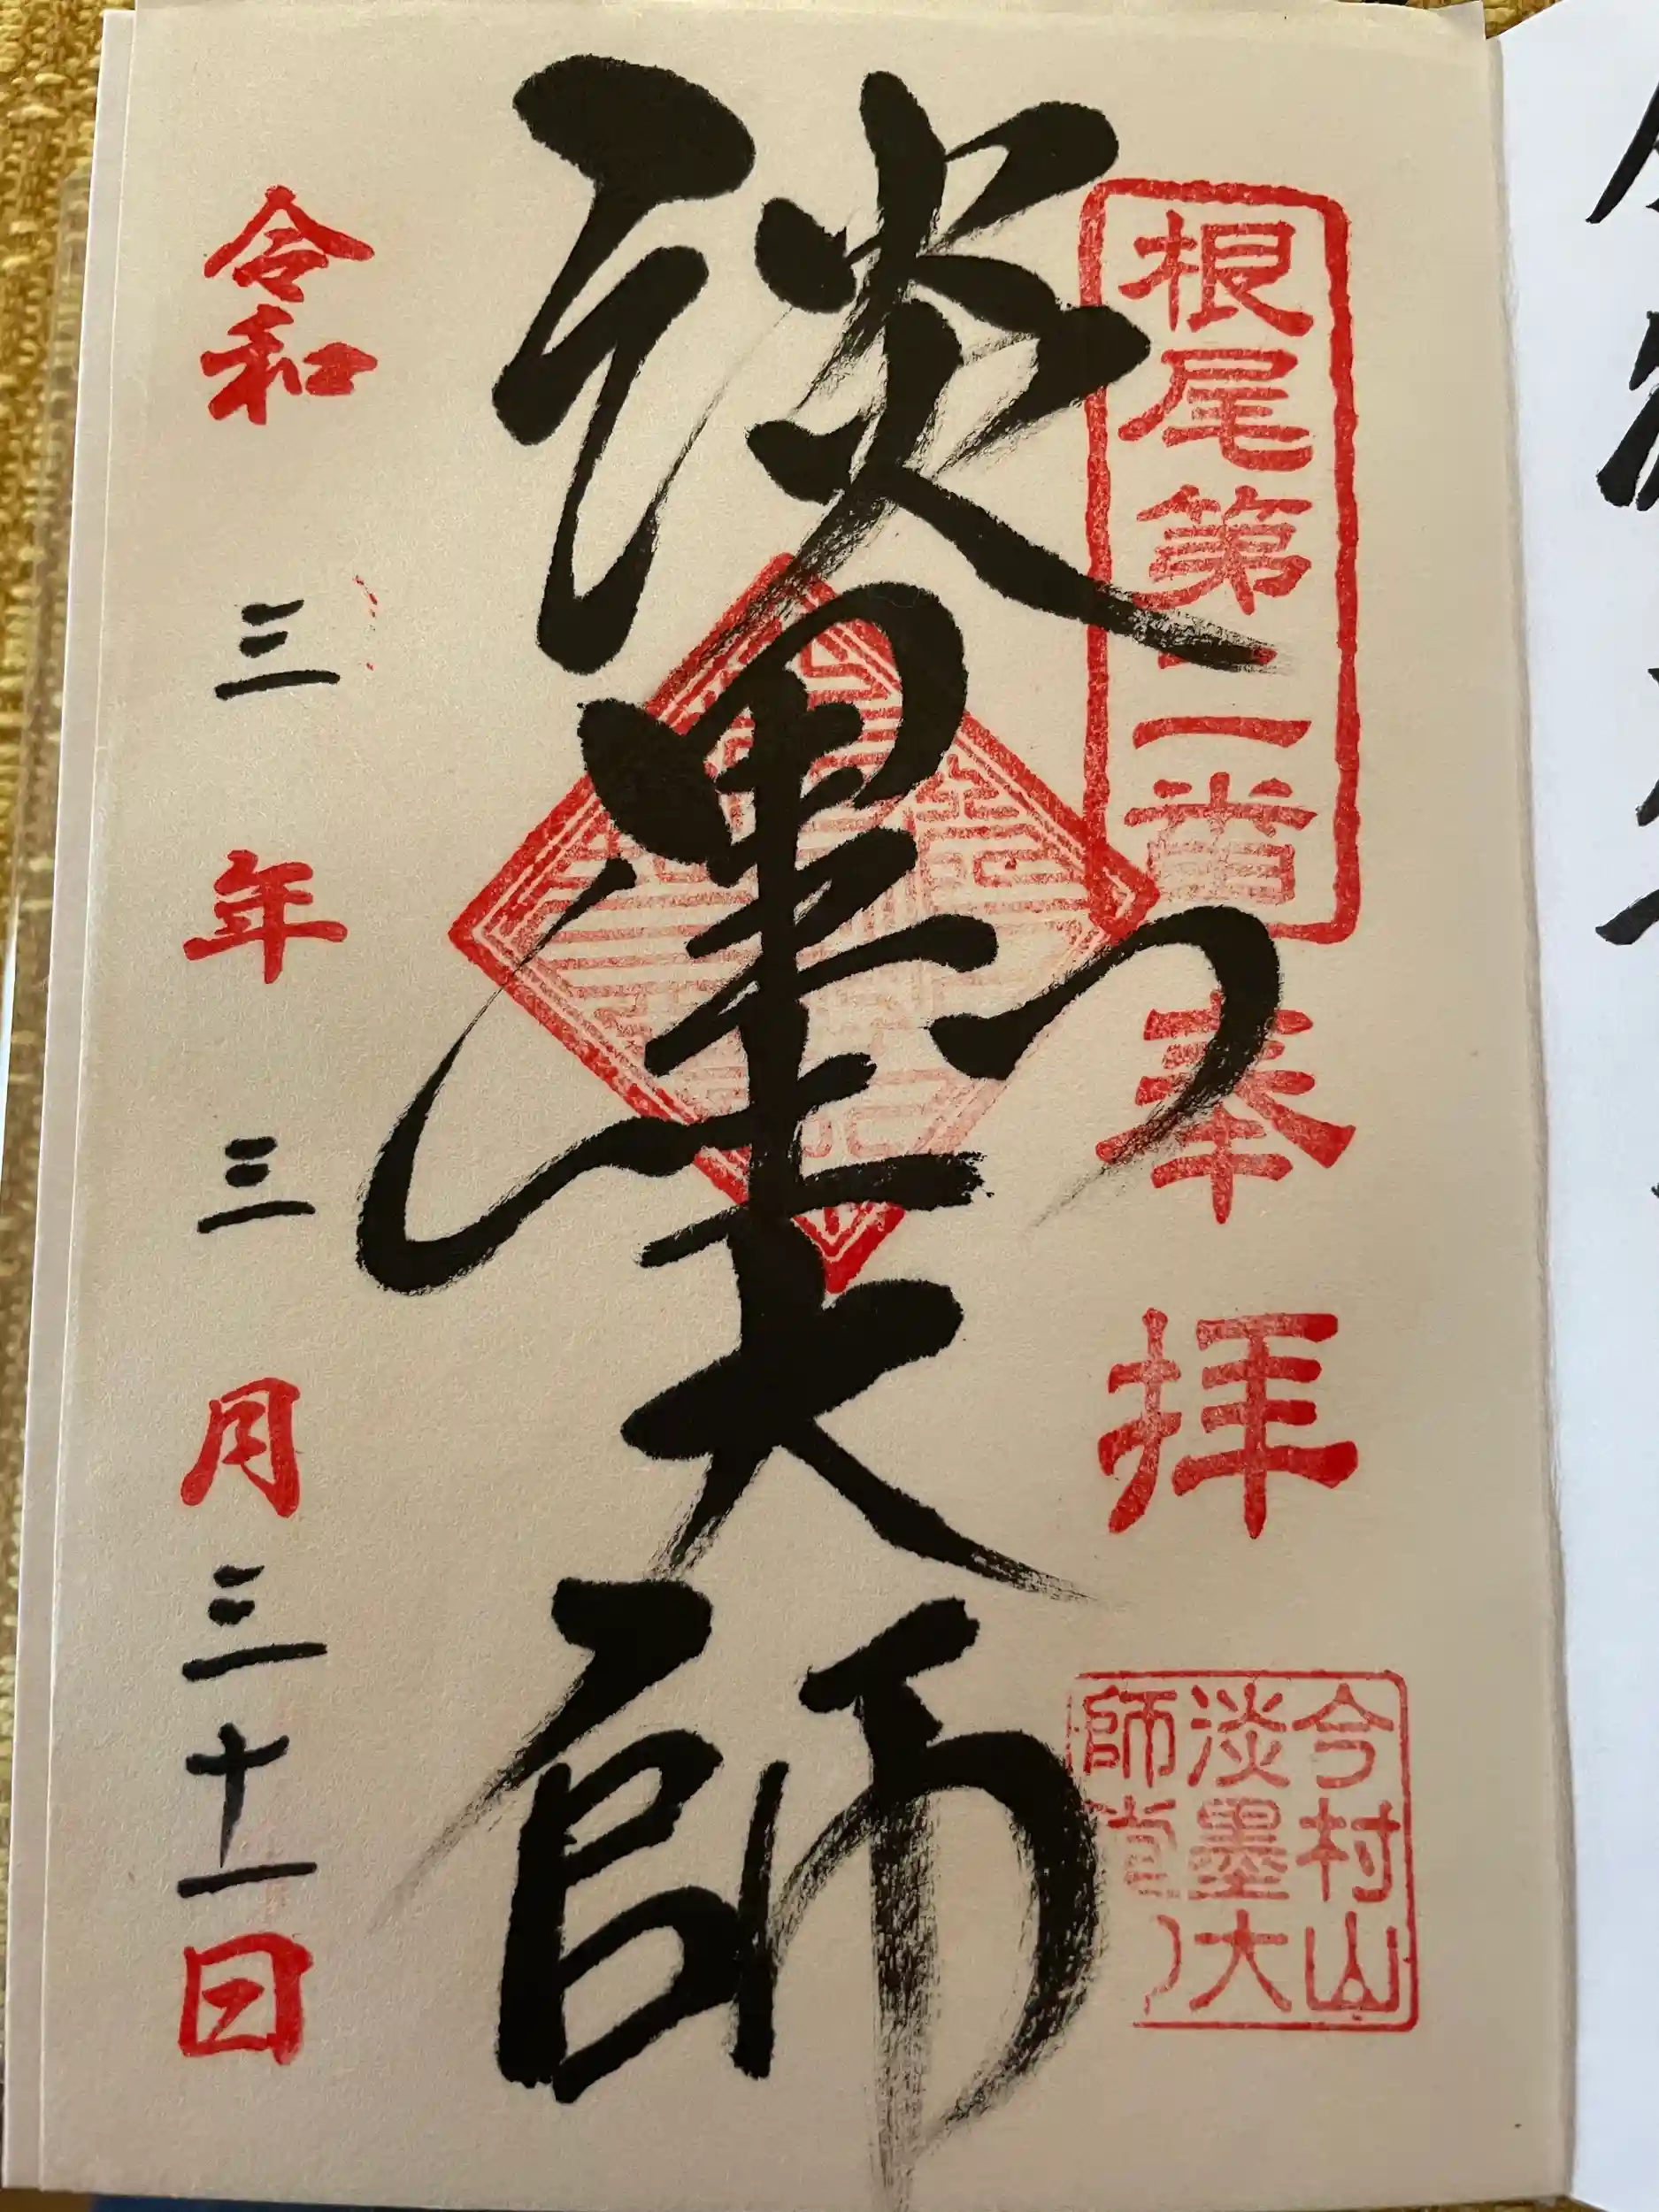 根尾第二番
奉拝
今村山
淡墨大
師
淡墨大師
令和三年三月三十一日